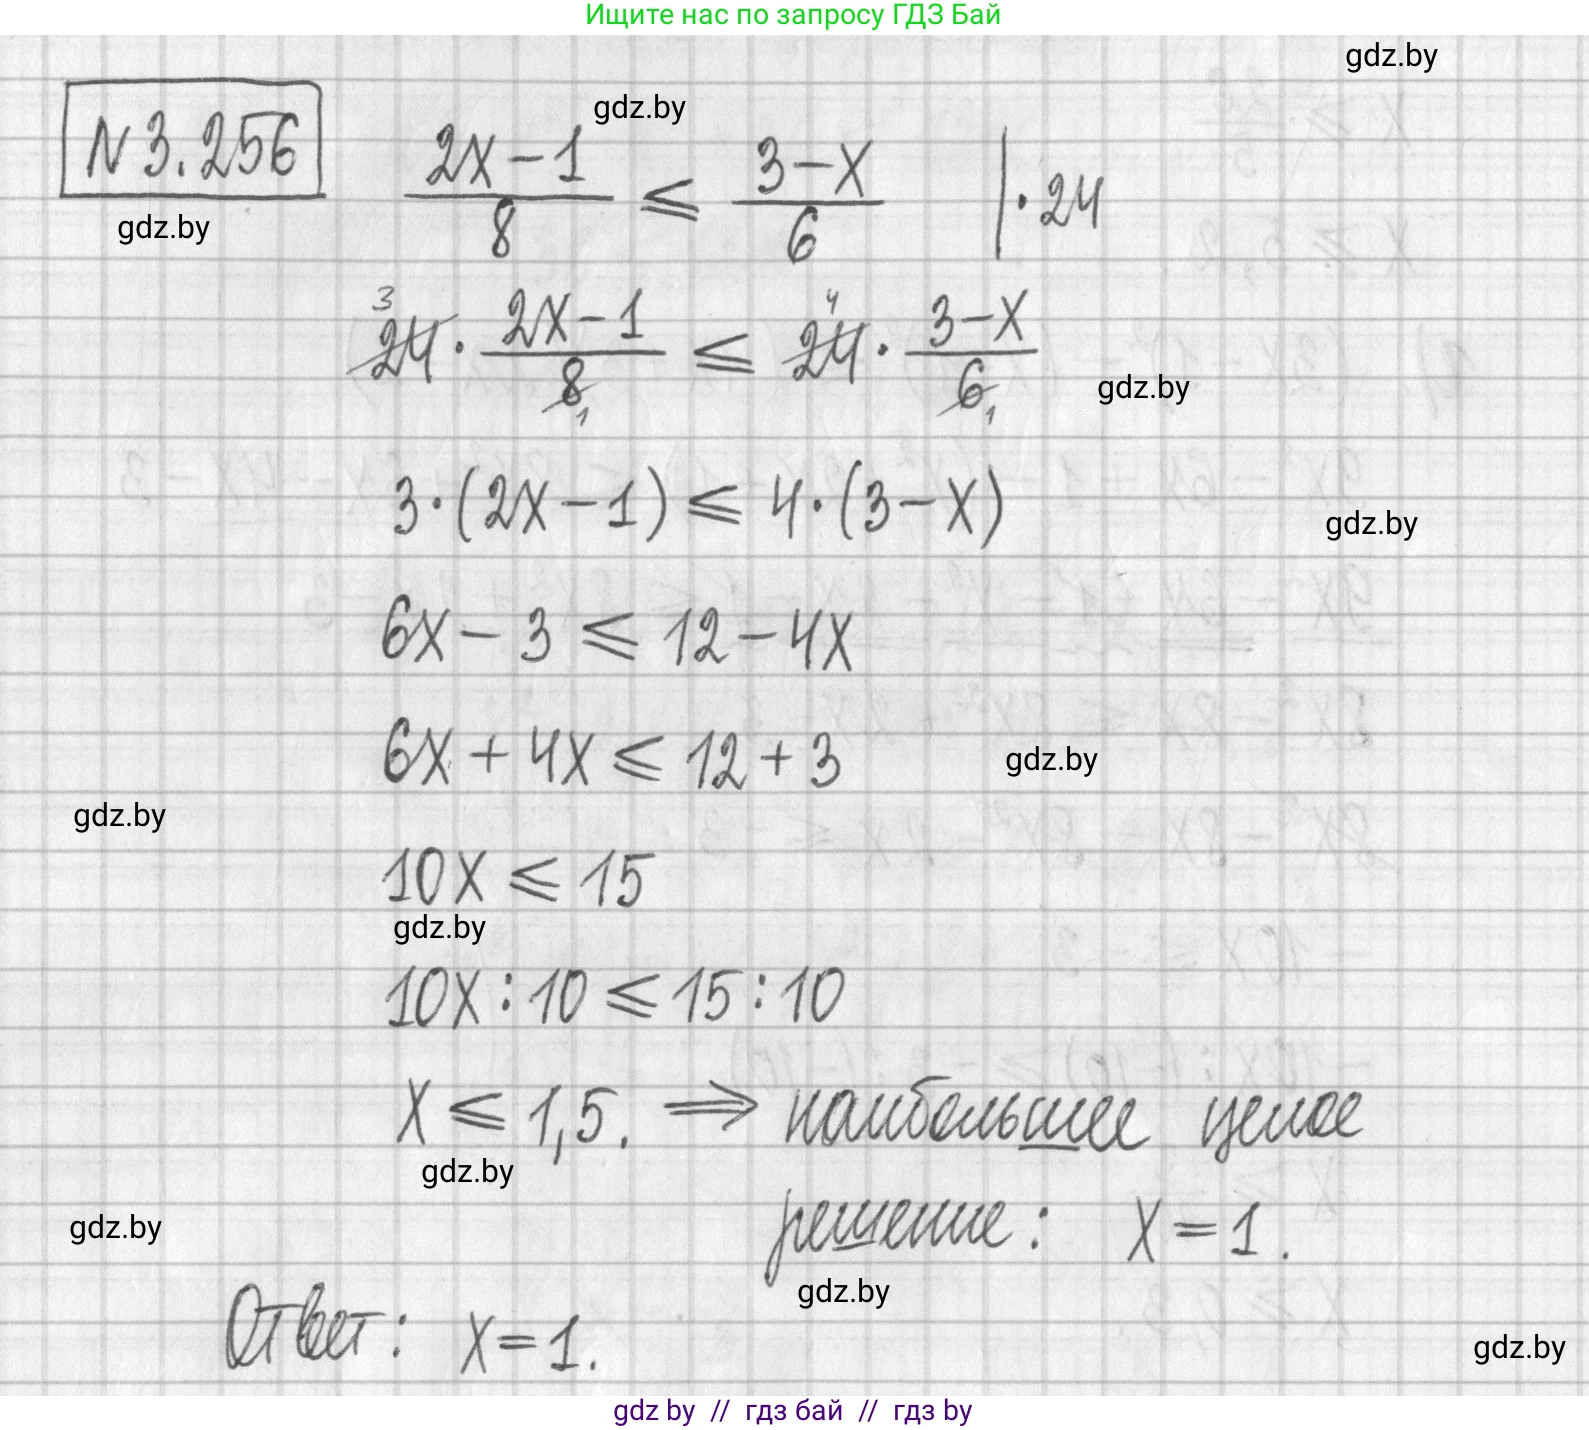 Ищите нас по запросу ГДЗ Бай
gdz.by
gdz.by
N 3.256
(2x-1)/8 ⩽ (3-x)/6 | · 24
gdz.by
³24 · (2x-1)/8₁ ⩽ ⁴24 · (3-x)/6₁
gdz.by
3·(2x-1) ⩽ 4·(3-x)
gdz.by
6x - 3 ⩽ 12 - 4x
6x + 4x ⩽ 12 + 3
gdz.by
gdz.by
10x ⩽ 15
gdz.by
10x : 10 ⩽ 15 : 10
x ⩽ 1,5. ⇒ наибольшее целое
gdz.by
решение: x = 1.
gdz.by
gdz.by
Ответ: x = 1.
gdz.by
gdz by // гдз бай // гдз by